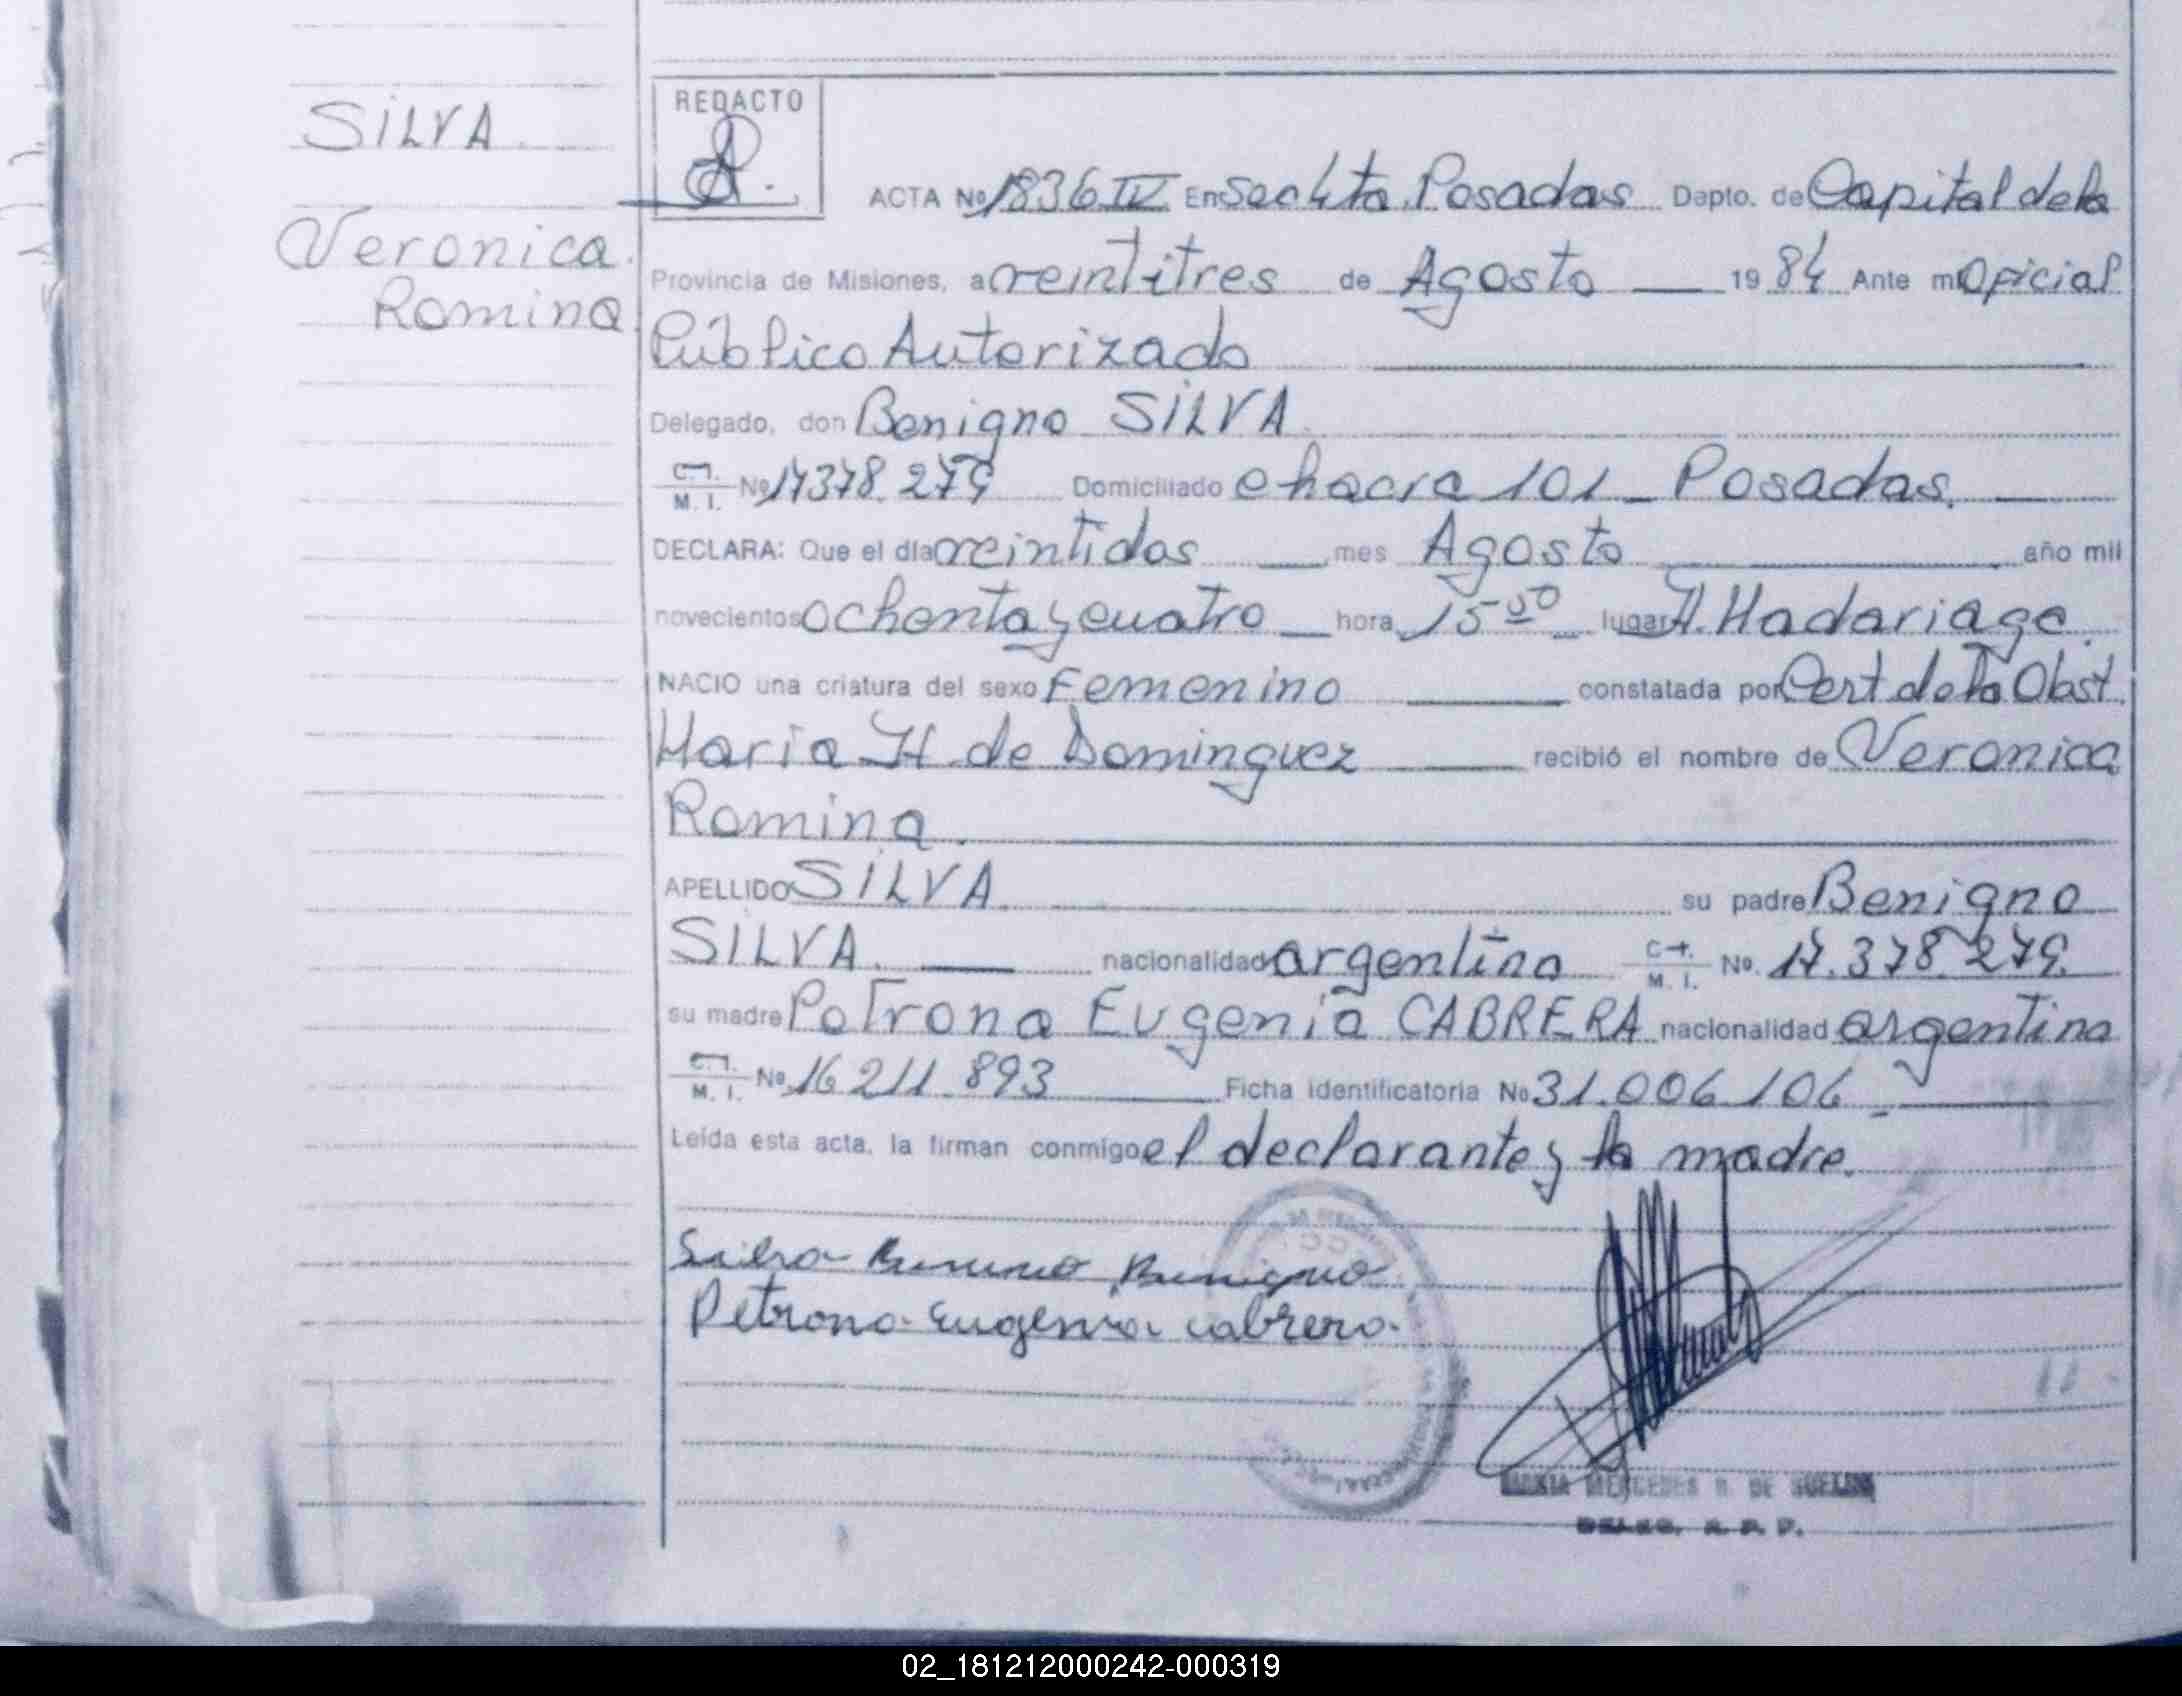 SILVA
Veronica
Romina
REDACTO
ACTA Nº 1836 IV En Sec 4ta Posadas Dapto. de Capital de la
Provincia de Misiones, a veintitres de Agosto 19 84 Ante mi Oficial
Público Autorizado
Delegado, don Benigno SILVA
C.I. M. I. Nº 17378.279 Domiciliado chacra 101 - Posadas.
DECLARA: Que el día veintidos mes Agosto año mil
novecientos ochenta y cuatro hora 15 00 lugar H. Madariaga.
NACIO una criatura del sexo Femenino constatada por Cert de la Obst.
Maria H. de Dominguez recibió el nombre de Veronica
Romina
APELLIDO SILVA su padre Benigno
SILVA. nacionalidad argentino C.I. M. I. Nº. 17.378.279
su madre Petrona Eugenia CABRERA nacionalidad argentina
C.I. M. I. Nº 16 211.893 Ficha identificatoria Nº 31.006.106
Leída esta acta, la firman conmigo el declarante y la madre.
Silva Benigno
Petrona Eugenia Cabrera
MARIA MERCEDES DE
02_181212000242-000319